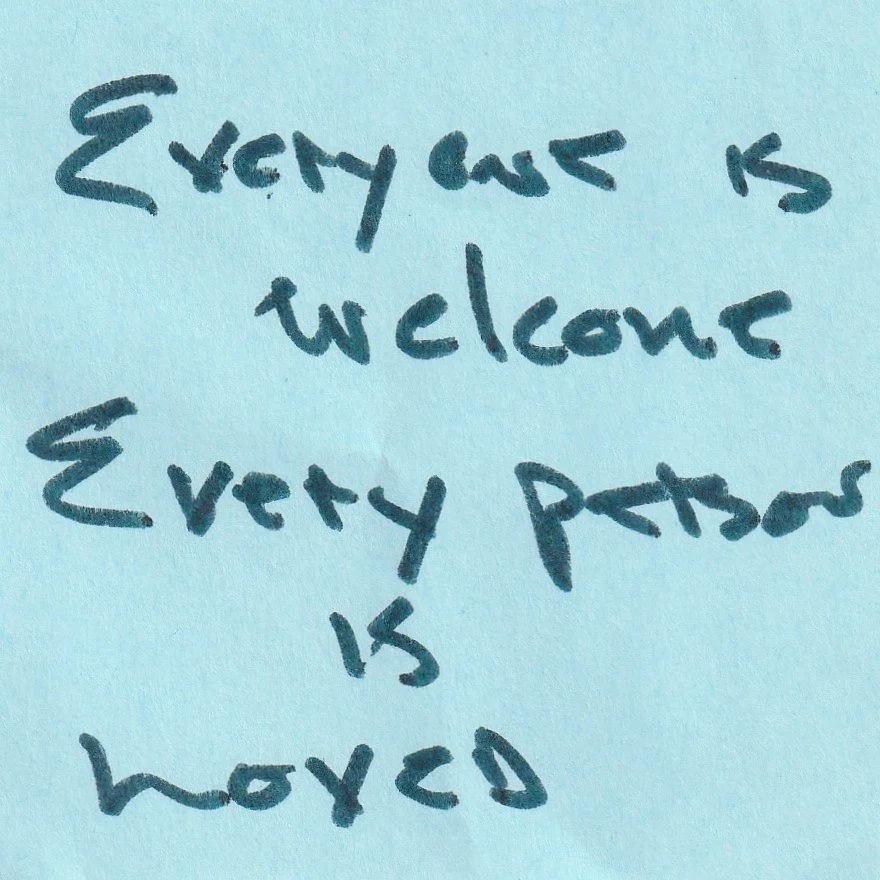 Everyone is
welcome
Every person
is
Loved